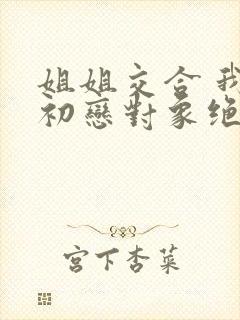 姐姐交合 我
初戀對象绝
宮下杏菜